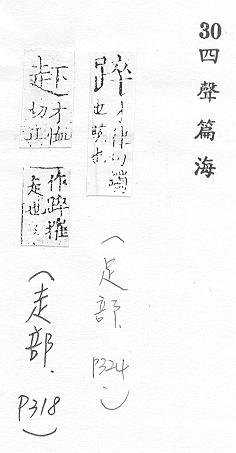 30四聲篇海
踤 才律切
也
(足部. P324)
才恤
切
作踤摧
走也
(走部. P318)